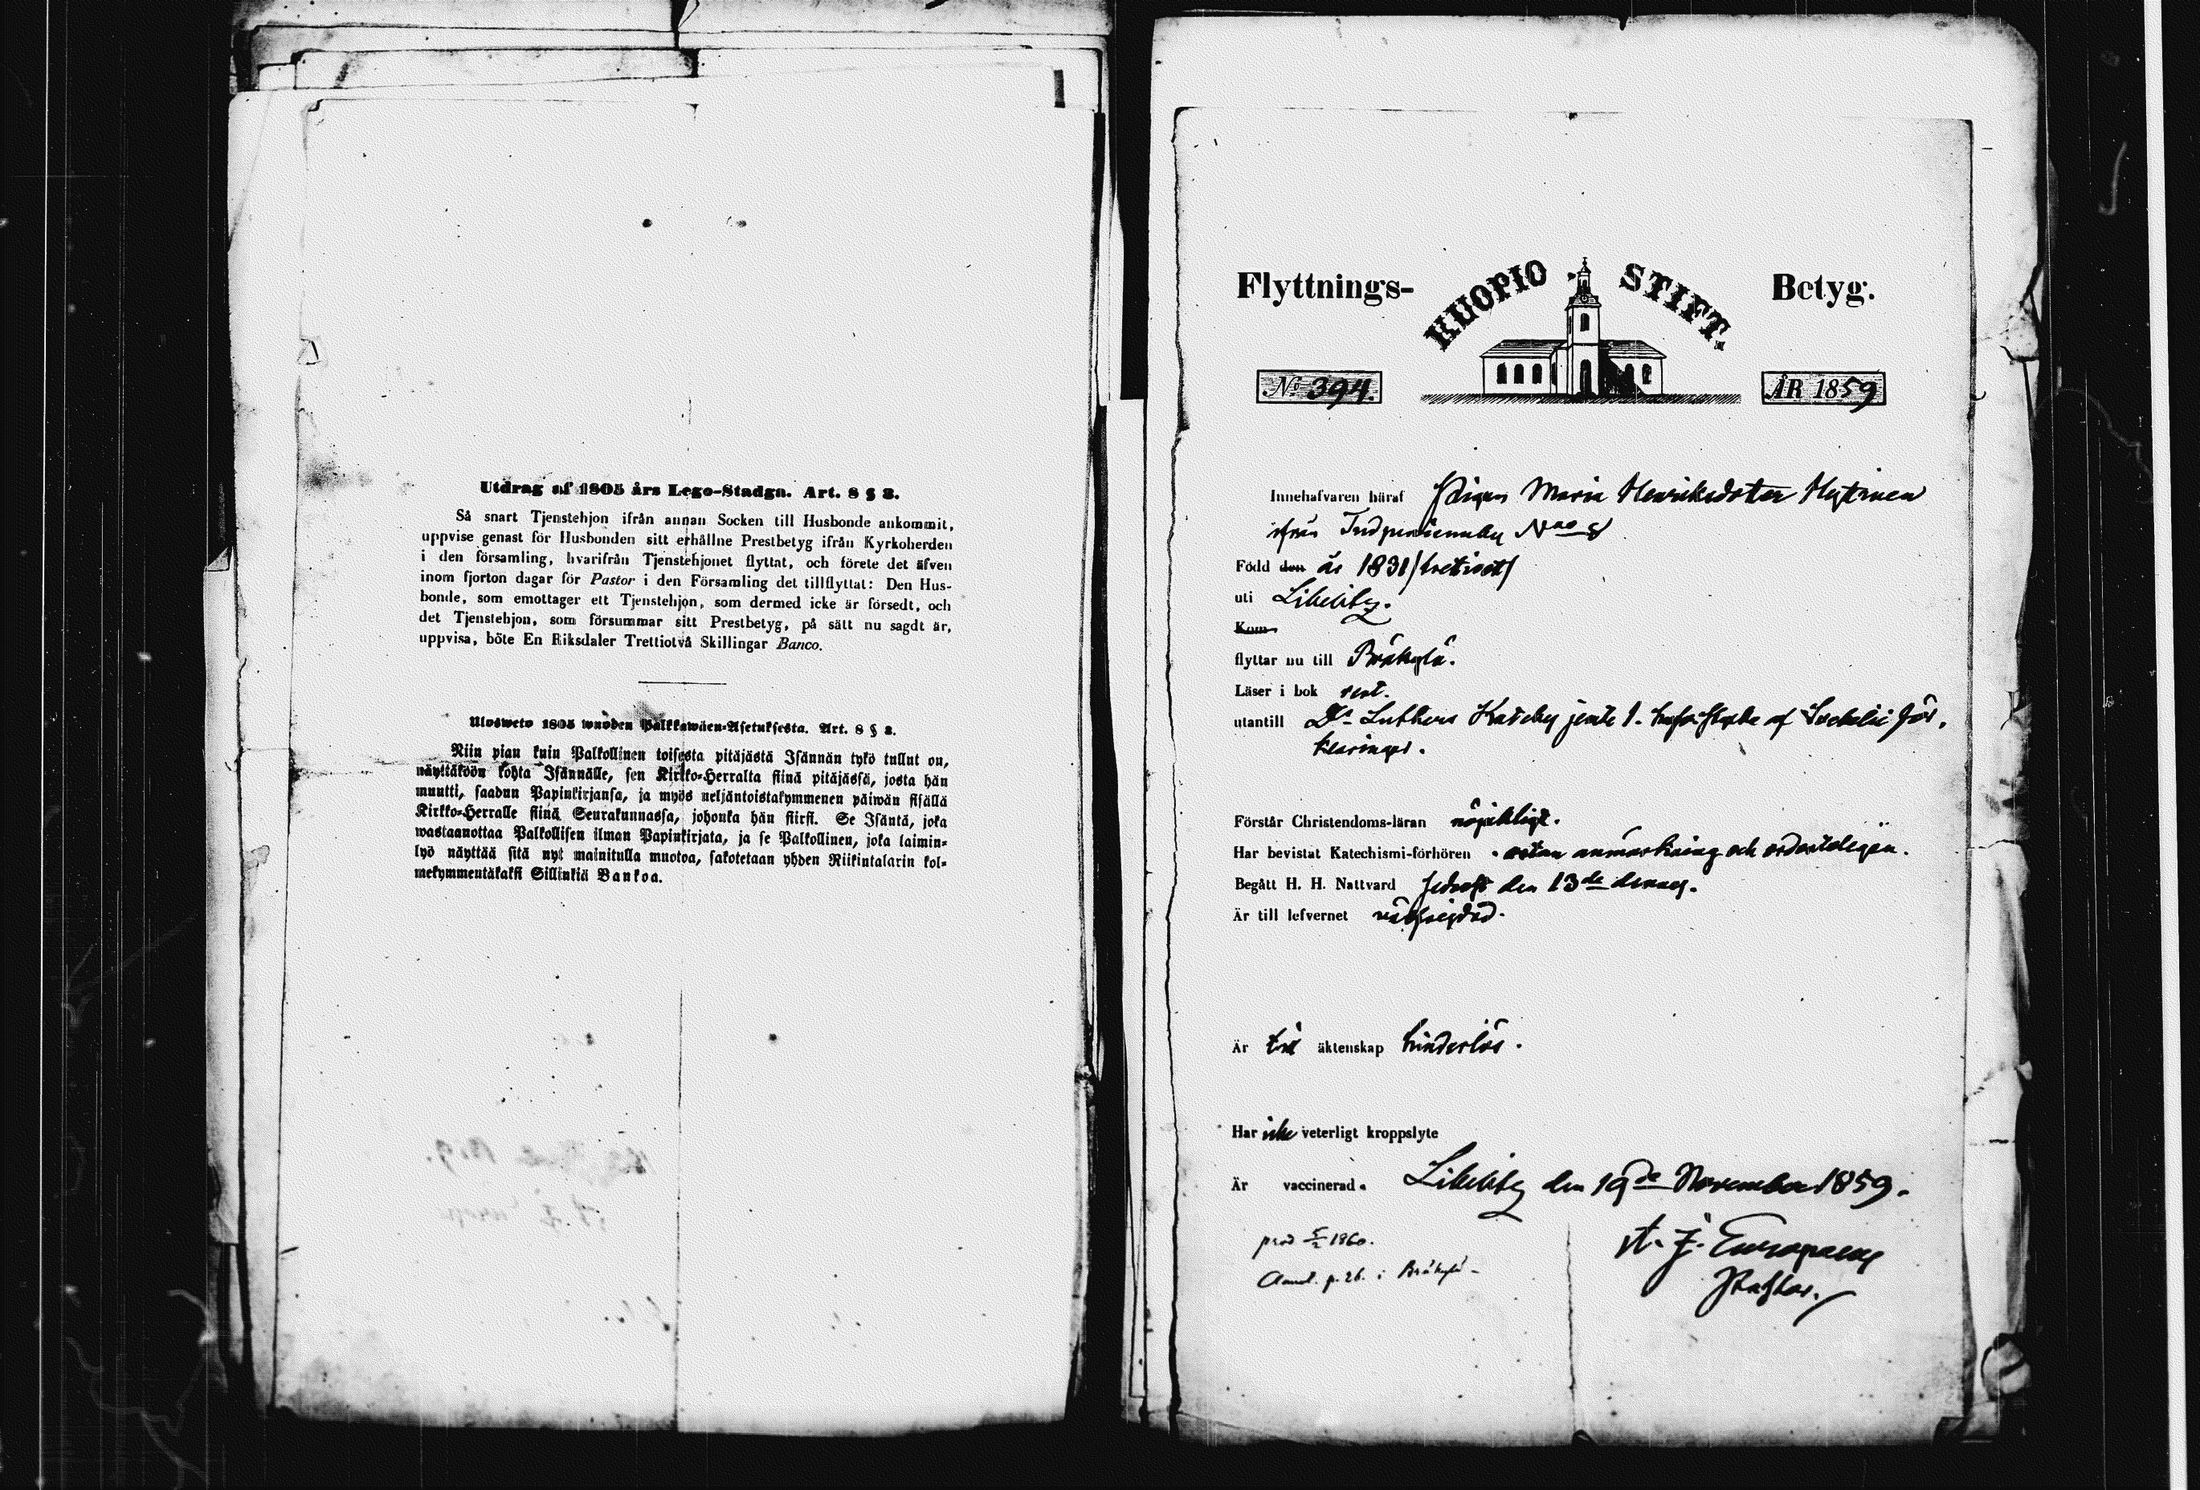 Utdrag af 1805 års Lego-Stadga. Art. 8 § 3.
Så snart Tjenstehjon ifrån annan Socken till Husbonde ankommit,
uppvise genast för Husbonden sitt erhållne Prestbetyg ifrån Kyrkoherden
i den församling, hvarifrån Tjenstehjonet flyttat, och förete det äfven
inom fjorton dagar för Pastor i den Församling det tillflyttat: Den Hus-
bonde, som emottager ett Tjenstehjon, som dermed icke är försedt, och
det Tjenstehjon, som försummar sitt Prestbetyg, på sätt nu sagdt är,
uppvisa, böte En Riksdaler Trettiotvå Skillingar Banco.
Ulosweto 1805 wuoden Palkkawäen-Asetuksesta. Art. 8 § 3.
Niin pian kuin Palkollinen toisesta pitäjästä Isännän tykö tullut on,
näyttäköön kohta Isännälle, sen Kirkko-Herralta siinä pitäjässä, josta hän
muutti, saadun Papinkirjansa, ja myös neljäntoistakymmenen päiwän sisällä
Kirkko-Herralle siinä Seurakunnassa, johonka hän siirsi. Se Isäntä, joka
wastaanottaa Palkollisen ilman Papinkirjata, ja se Palkollinen, joka laimin-
lyö näyttää sitä nyt mainitulla muotoa, sakotetaan yhden Riikintalarin kol-
mekymmentäkaksi Sillinkiä Bankoa.
Flyttnings- KUOPIO STIFT. Betyg.
No 394. ÅR 1859
Innehafvaren häraf Pigan Maria Henriksdotter Hytinen
ifrån No 8
Född den år 1831/trettiett/
uti Libelitz.
Kom
flyttar nu till Bräkylä.
Läser i bok rent.
utantill Dr Luthers Kateches jemte 1. hufvudstycke af Svebelii för-
klaringar.
Förstår Christendoms-läran nöjaktigt.
Har bevistat Katechismi-förhören utan anmärkning och ordenteligen.
Begått H. H. Nattvard sednast den 13de dennes.
Är till lefvernet välfrejdad.
Är till äktenskap hinderlös.
Har icke veterligt kroppslyte
Är vaccinerad. Libelitz den 19de November 1859.
prod 5/2 1860.
A. J. Europaeus
Annot. p. 26. i Bräkylä
Pastor.